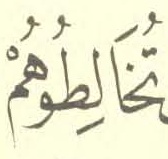 تُخَالِطُوهُمْ